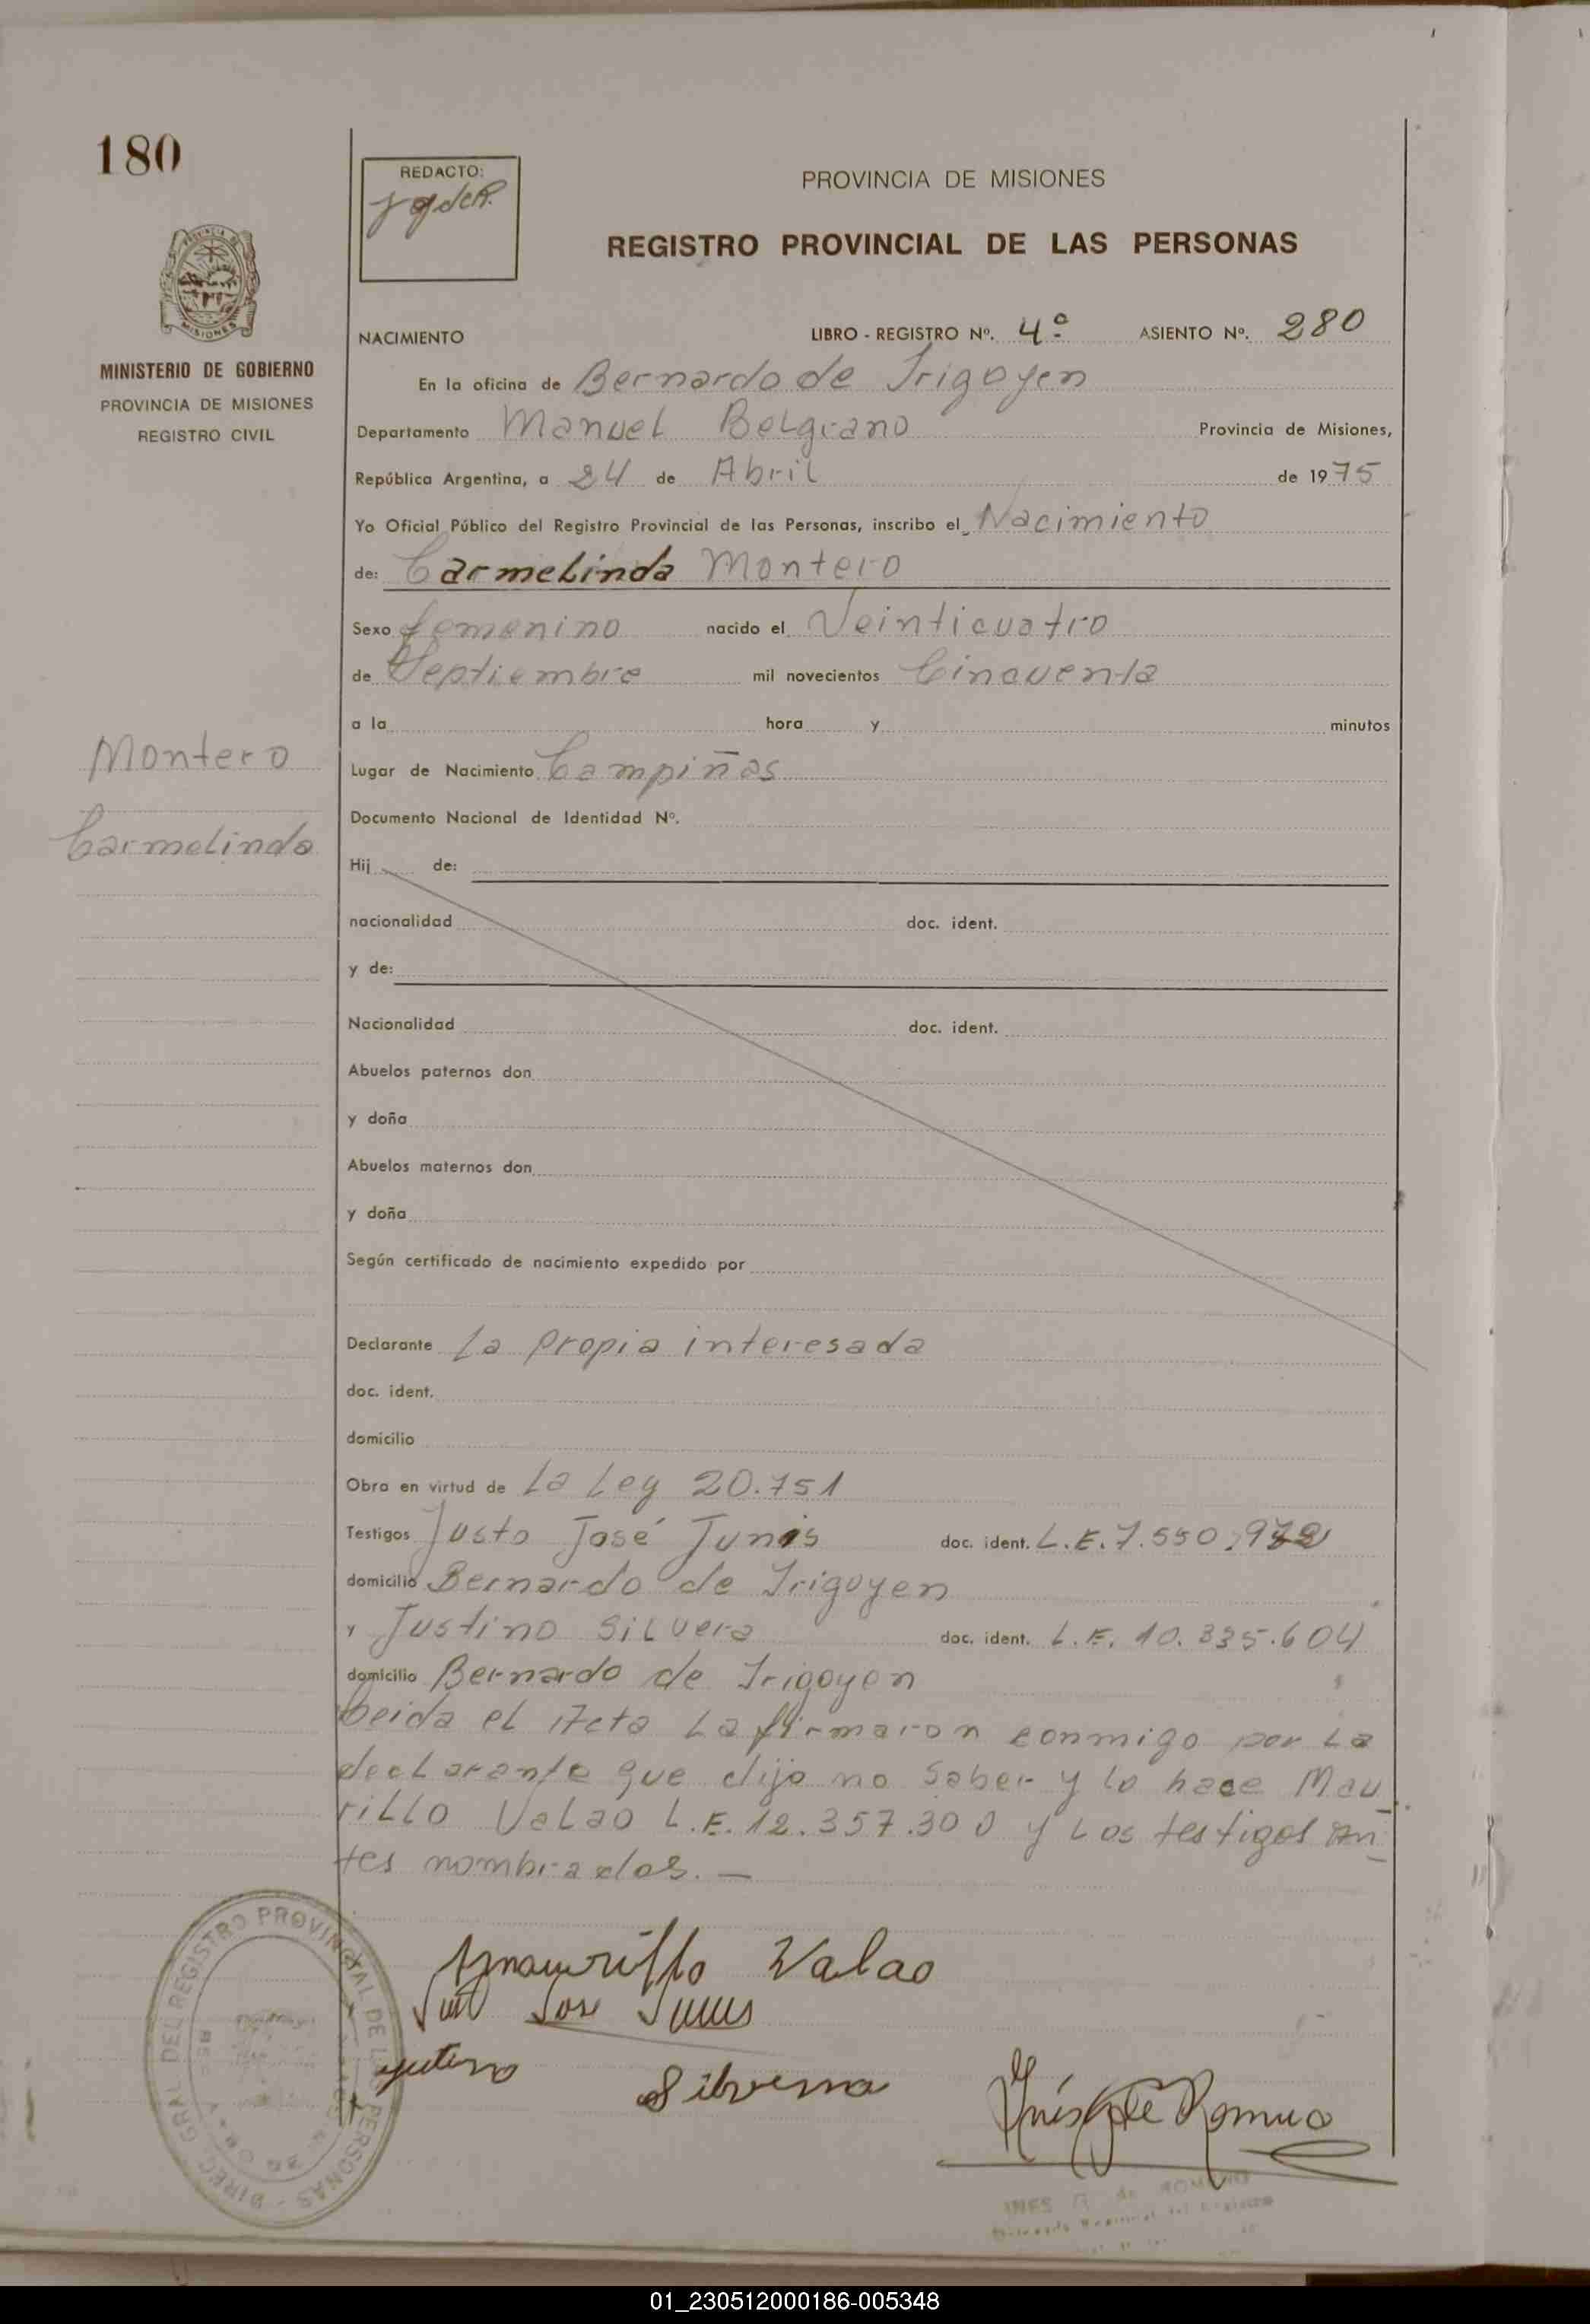 180
REDACTO:
PROVINCIA DE MISIONES
REGISTRO PROVINCIAL DE LAS PERSONAS
MISIONES
MINISTERIO DE GOBIERNO
PROVINCIA DE MISIONES
REGISTRO CIVIL
NACIMIENTO LIBRO - REGISTRO Nº. 4º ASIENTO Nº. 280
En la oficina de Bernardo de Irigoyen
Departamento Manuel Belgrano Provincia de Misiones,
República Argentina, a 24 de Abril de 1975
Yo Oficial Público del Registro Provincial de las Personas, inscribo el Nacimiento
de: Carmelinda Montero
Sexo femenino nacido el Veinticuatro
de Septiembre mil novecientos Cincuenta
a la hora y minutos
Montero
Lugar de Nacimiento Campiñas
Documento Nacional de Identidad Nº.
Carmelinda
Hij de:
nacionalidad doc. ident.
y de:
Nacionalidad doc. ident.
Abuelos paternos don
y doña
Abuelos maternos don
y doña
Según certificado de nacimiento expedido por
Declarante La propia interesada
doc. ident.
domicilio
Obra en virtud de La Ley 20.751
Testigos Justo José Junis doc. ident. L.E. 7.550
domicilio Bernardo de Irigoyen
y Justino Silvera doc. ident. L.E. 10.335.604
domicilio Bernardo de Irigoyen
Leida el Acta La firmaron conmigo por La
declarante que dijo no saber y lo hace Mau_
rillo Valao L.E. 12.357.300 y Los testigos an_
tes nombrados. —
Amaurillo Valao
Jose
Silverna
Inés de Romero
DIREC. GRAL. DEL REGISTRO PROVINCIAL DE LAS PERSONAS
01_230512000186-005348